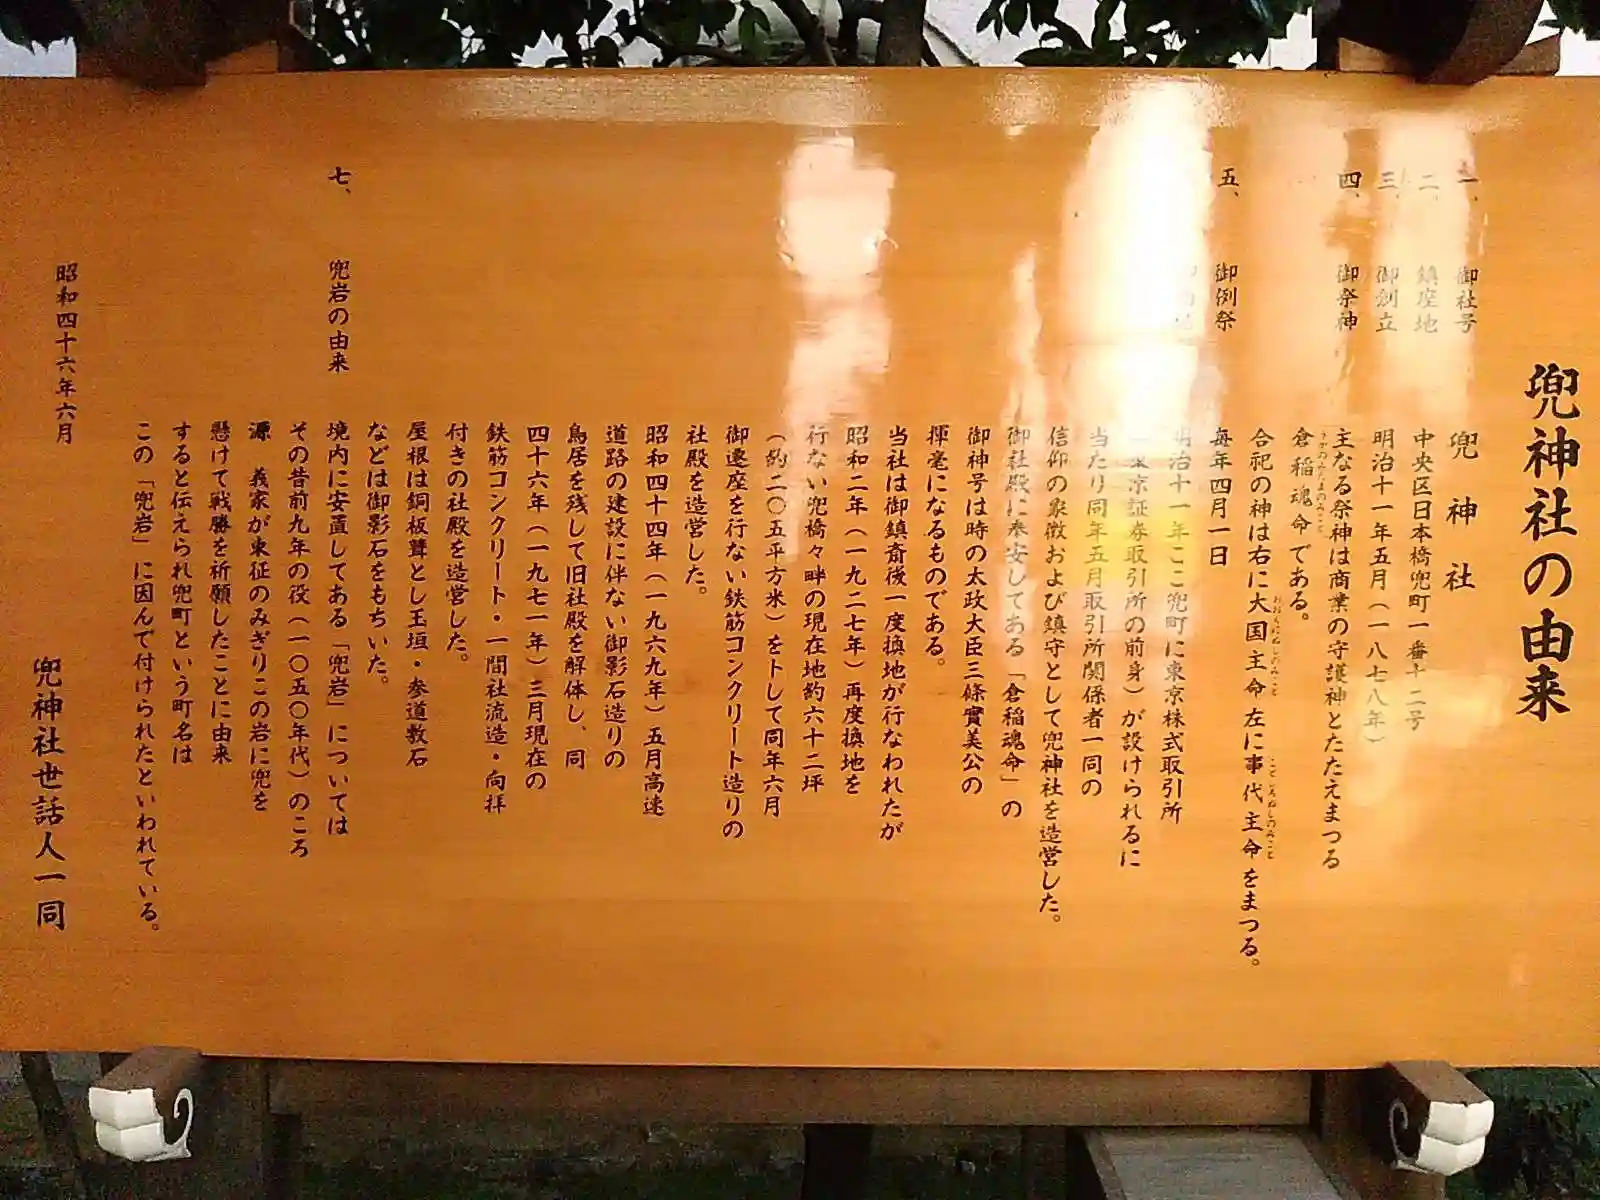 兜神社の由来
一、 御社号 兜神社
二、 鎮座地 中央区日本橋兜町一番十二号
三、 御創立 明治十一年五月(一八七八年)
四、 御祭神 主なる祭神は商業の守護神とたたえまつる
倉稲魂命である。
合祀の神は右に大国主命 左に事代主命をまつる。
五、 御例祭 毎年四月一日
明治十一年ここ兜町に東京株式取引所
東京証券取引所の前身)が設けられるに
当たり同年五月取引所関係者一同の
信仰の象徴および鎮守として兜神社を造営した。
御社殿に奉安してある「倉稲魂命」の
御神号は時の太政大臣三條實美公の
揮毫になるものである。
当社は御鎮斎後一度換地が行なわれたが
昭和二年(一九二七年)再度換地を
行ない兜橋々畔の現在地約六十二坪
(約二〇五平方米)をトして同年六月
御遷座を行ない鉄筋コンクリート造りの
社殿を造営した。
昭和四十四年(一九六九年)五月高速
道路の建設に伴ない御影石造りの
鳥居を残して旧社殿を解体し、同
四十六年(一九七一年)三月現在の
鉄筋コンクリート・一間社流造・向拝
付きの社殿を造営した。
屋根は銅板葺とし玉垣・参道敷石
などは御影石をもちいた。
七、 兜岩の由来 境内に安置してある「兜岩」については
その昔前九年の役(一〇五〇年代)のころ
源 義家が東征のみぎりこの岩に兜を
懸けて戦勝を祈願したことに由来
すると伝えられ兜町という町名は
この「兜岩」に因んで付けられたといわれている。
昭和四十六年六月
兜神社世話人一同